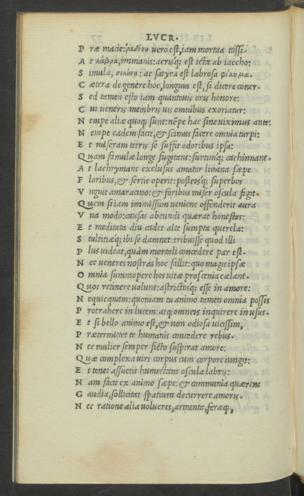 LVCR.
P ræ macie: ῥαδινὴ uero est, iam mortua tussi.
A t λάβρα, immanis: acrisq; est icta ab iaccho:
S imula, σιλήνα: ac satyra est labrosa φίλημα.
C ætera de genere hoc, longum est, si dicere coner.
S ed tamen esto iam quantouis oris honore:
C ui ueneris membris uis omnibus exoriatur:
N empe aliæ quoq; sunt: nempe hac sine uiximus ante:
N empe eadem facit, & scimus facere omnia turpi:
E t miseram tetris se suffit odoribus ipsa:
Q uam famulæ longe fugitant: furtimq; cachinnant.
A t lachrymans exclusus amator limina sæpe
F loribus, & sertis operit: postesq; superbos
V nguit amaracino: & foribus miser oscula figit.
Q uem si iam immissum ueniens offenderit aura
V na modo: causas abeundi quærat honestas:
E t meditata diu cadat alte sumpta querela:
S tultitiæq; ibi se damnet: tribuisse quod illi
P lus uideat, quàm mortali concedere par est.
N ec ueneres nostras hoc fallit: quo magis ipsæ
O mnia summopere hos uitæ proscenia cælant.
Q uos retinere uolunt: astrictosq; esse in amore:
N equicquam: quoniam tu animo tamen omnia possis
P rotrahere in lucem: atq; omneis inquirere in usus.
E t si bello animo est, & non odiosa uicissim,
P rætermittet te humanis concedere rebus.
N ec mulier semper ficto suspirat amore:
Q uæ complexa uiri corpus cum corpore iungit:
E t tenet assuctis humectens oscula labris:
N am facit ex animo sæpe: & communia quærens
G audia, sollicitat spatium decurrere amoris.
N ec ratione alia uolucres, armenta, feræq;,